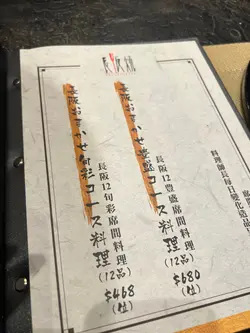 長阪
長阪おまかせ豊盛コース料理
長阪12豊盛席間料理
(12品)
$680
(位)
長阪おまかせ旬彩コース料理
長阪12旬彩席間料理
(12品)
$468
(位)
料理師長每日變化造品